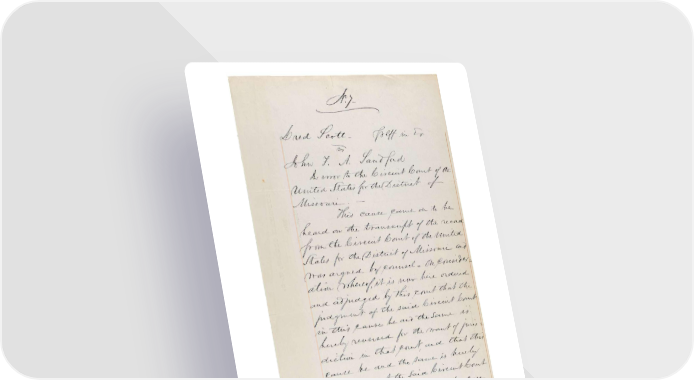 No. 7.
Dred Scott. Plff in Er
vs
John F. A. Sandford
Error to the Circuit Court of the
United States for the District of
Missouri.
This cause came on to be
heard on the transcript of the record
from the Circuit Court of the United
States for the District of Missouri and
was argued by counsel. On conside-
ation whereof, it is now here ordered
and adjudged by this court that the
judgment of the said Circuit Court
in this cause be and the same is
hereby reversed for the want of juris-
diction in that court and that this
cause be and the same is hereby
the said Circuit Court